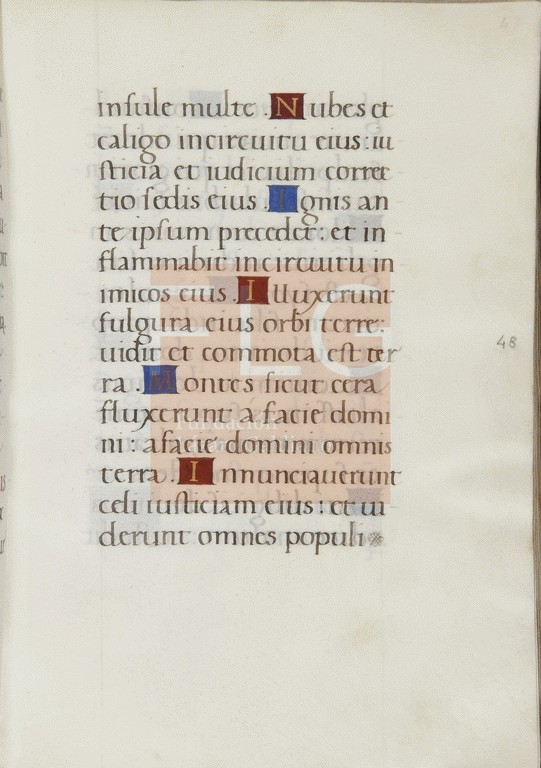 insule multe. Nubes et
caligo incircuitu eius: iu
sticia et iudicium corre
tio sedis eius. Ignis an
te ipsum precedet: et in
flammabit incircuitu in
imicos eius. Illuxerunt
fulgura eius orbi terre:
uidit et commota est ter
ra. Montes sicut cera
fluxerunt a facie domi
ni: afacie domini omnis
terra. Innunciauerunt
celi iusticiam eius: et ui
derunt omnes populi
48
FLG
Fundación